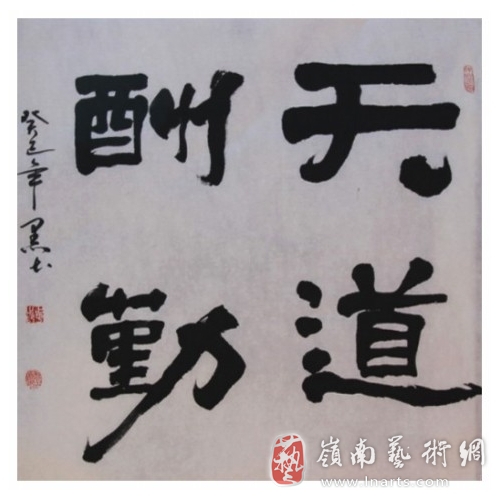 天道
酬勤
癸巳年
藝
嶺南藝術網
www.lnarts.com